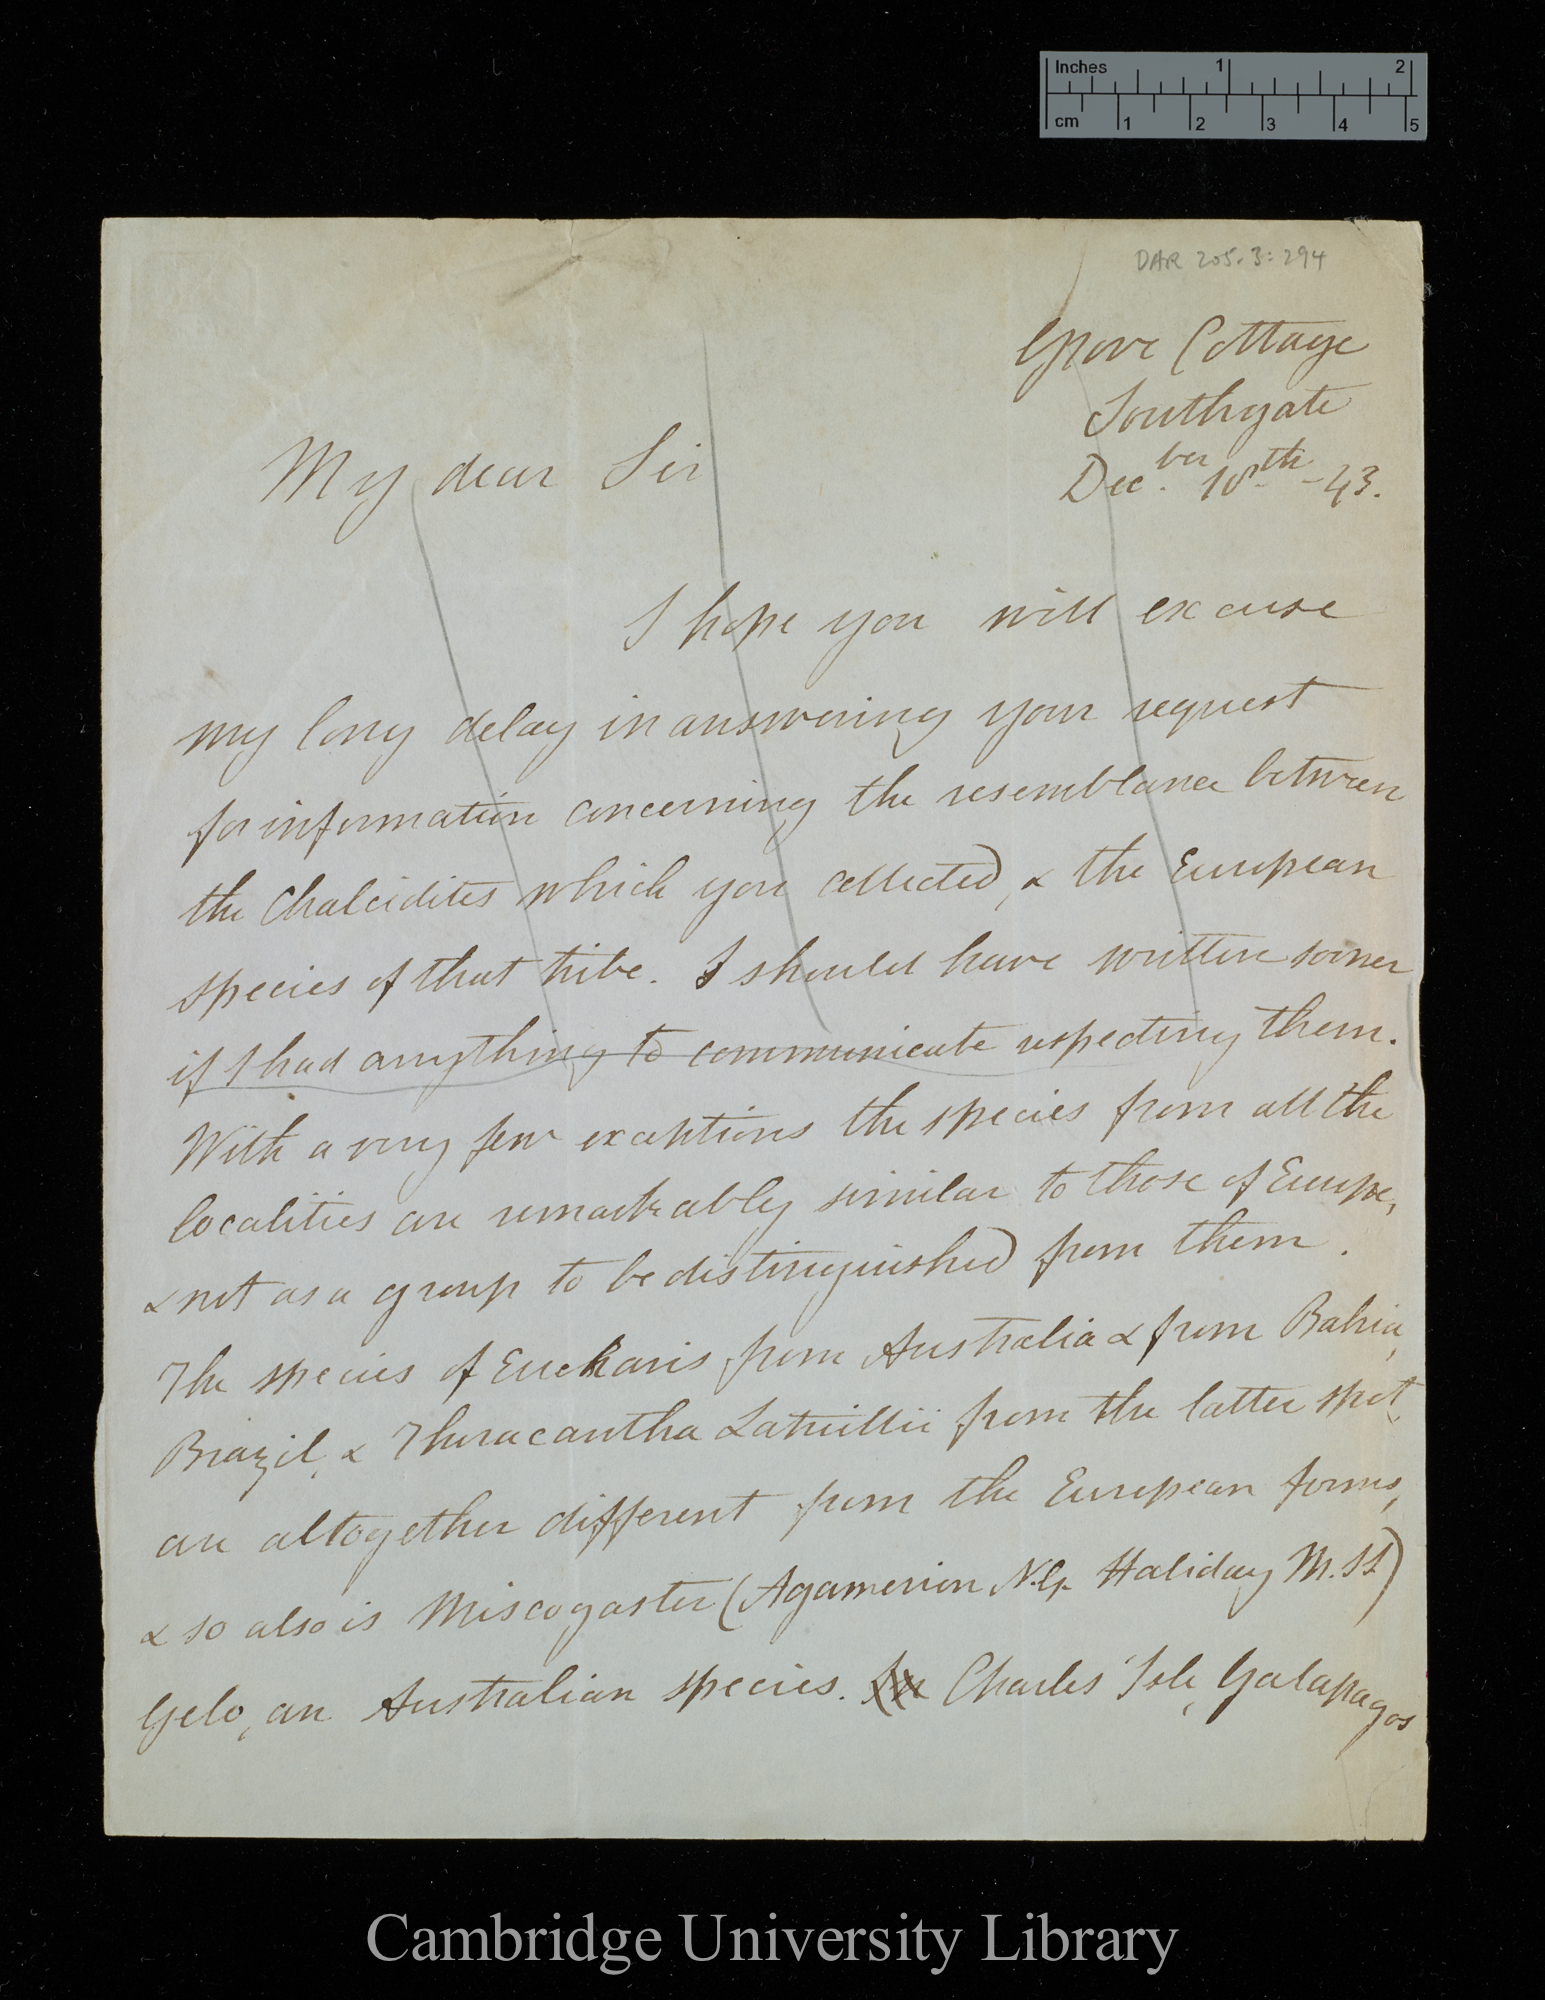 Inches 1 2
cm 1 2 3 4 5
DAR 205.3:294
Grove Cottage
Southgate
Dec.ber 10th -43.
My dear Sir
I hope you will excuse
my long delay in answering your request
for information concerning the resemblance between
the Chalcidites which you collected, & the European
species of that tribe. I should have written sooner
if I had anything to communicate respecting them.
With a very few exceptions the species from all the
localities are remarkably similar to those of Europe,
& not as a group to be distinguished from them.
The species of Eucharis from Australia & from Bahia,
Brazil, & Thoracantha Latreillii from the latter spot,
are altogether different from the European forms,
& so also is Miscogaster (Agamerion N.G. Haliday M.SS)
Gelo, an Australian species. Charles Isle, Galapagos
Cambridge University Library